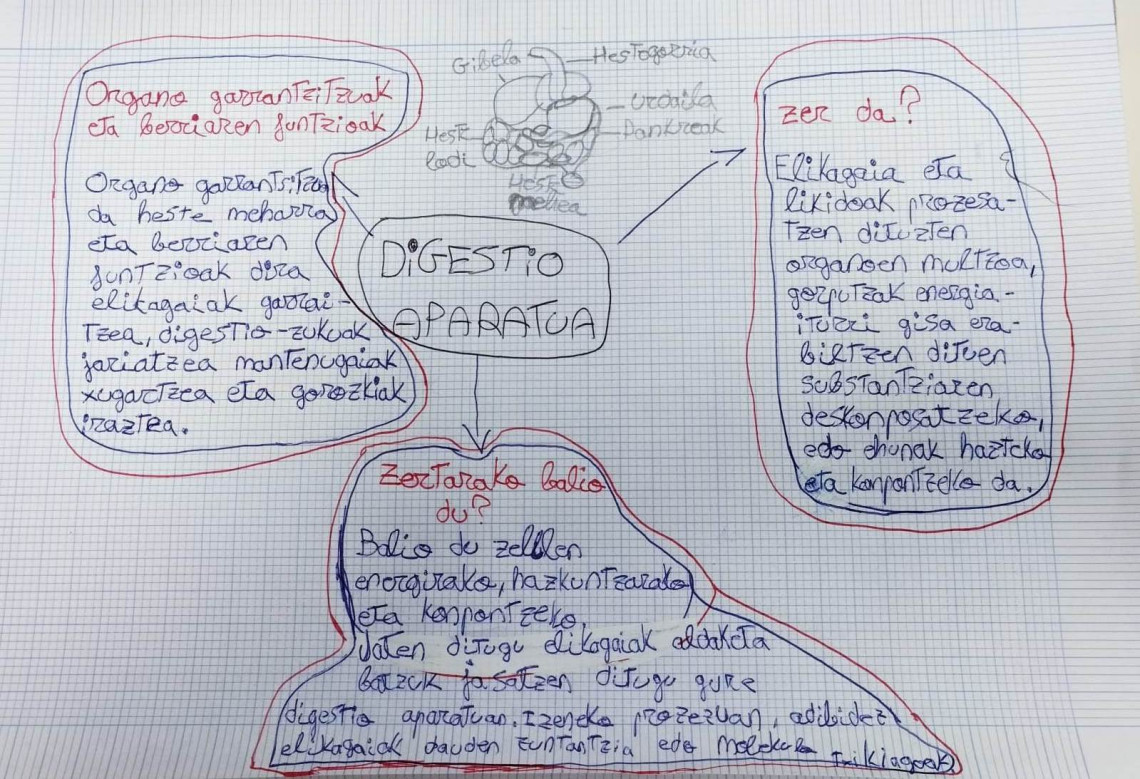 Gibela
Hestogorria
Urdaila
Pankreak
Heste
lodi
Heste
mehea
Organo garrantzitzuak
eta berriaren funtzioak
Organo garrantsitzua
da heste meharra
eta berriaren
funtzioak dira
elikagaiak garrai-
tzea, digestio-zukuak
jariatzea mantenugaiak
xugartzea eta gorozkiak
iraztea.
DiGESTiO
APARATUA
zer da?
Elikagaia eta
likidoak prozesa-
tzen dituzten
organoen multzoa,
gorputzak energia-
iturri gisa era-
biltzen dituen
substantziaren
deskonposatzeko,
edo ehunak hazteko
eta konpontzeko da.
Zertarako balio
du?
Balio du zelulen
energirako, hazkuntzarako
eta konpontzeko.
Jaten ditugu elikagaiak aldaketa
batzuk jasatzen ditugu gure
digestio aparatuan. Izeneko prozezuan, adibidez
elikagaiak dauden zuntantzia edo molekula txikiagoak